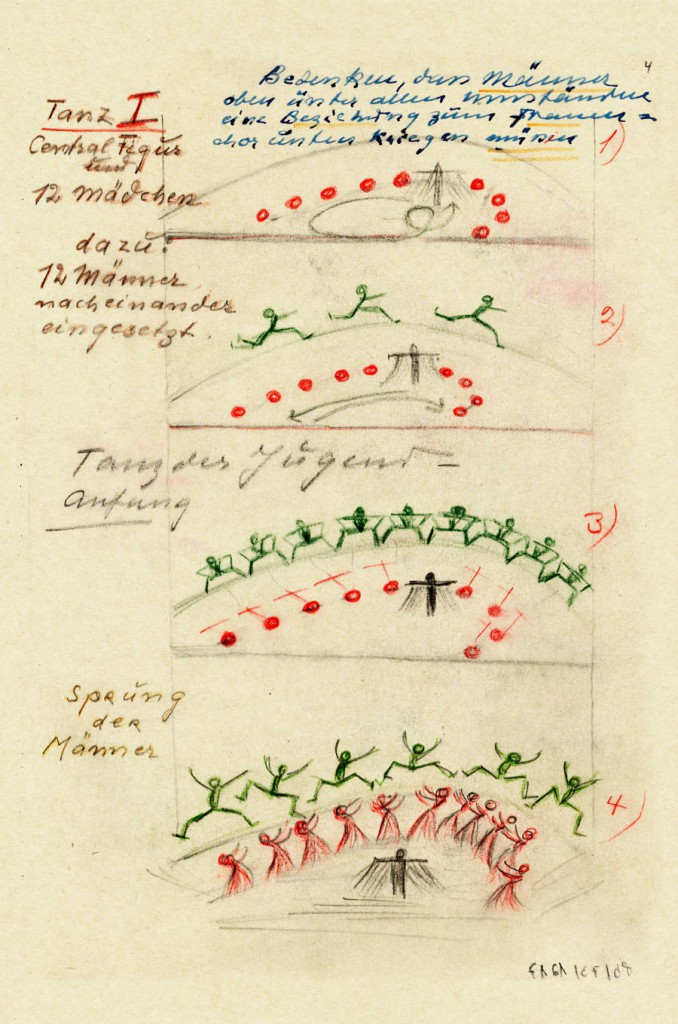 4
Bedenken, dass Männer
oben unter allen umständen
eine Beziehung zum Frauen=
chor unten kriegen müssen
Tanz I
Central Figur
und
12 Mädchen
dazu:
12 Männer
nacheinander
eingesetzt.
1)
2)
Tanz der Jugend -
Anfang
3)
Sprung
der
Männer
4)